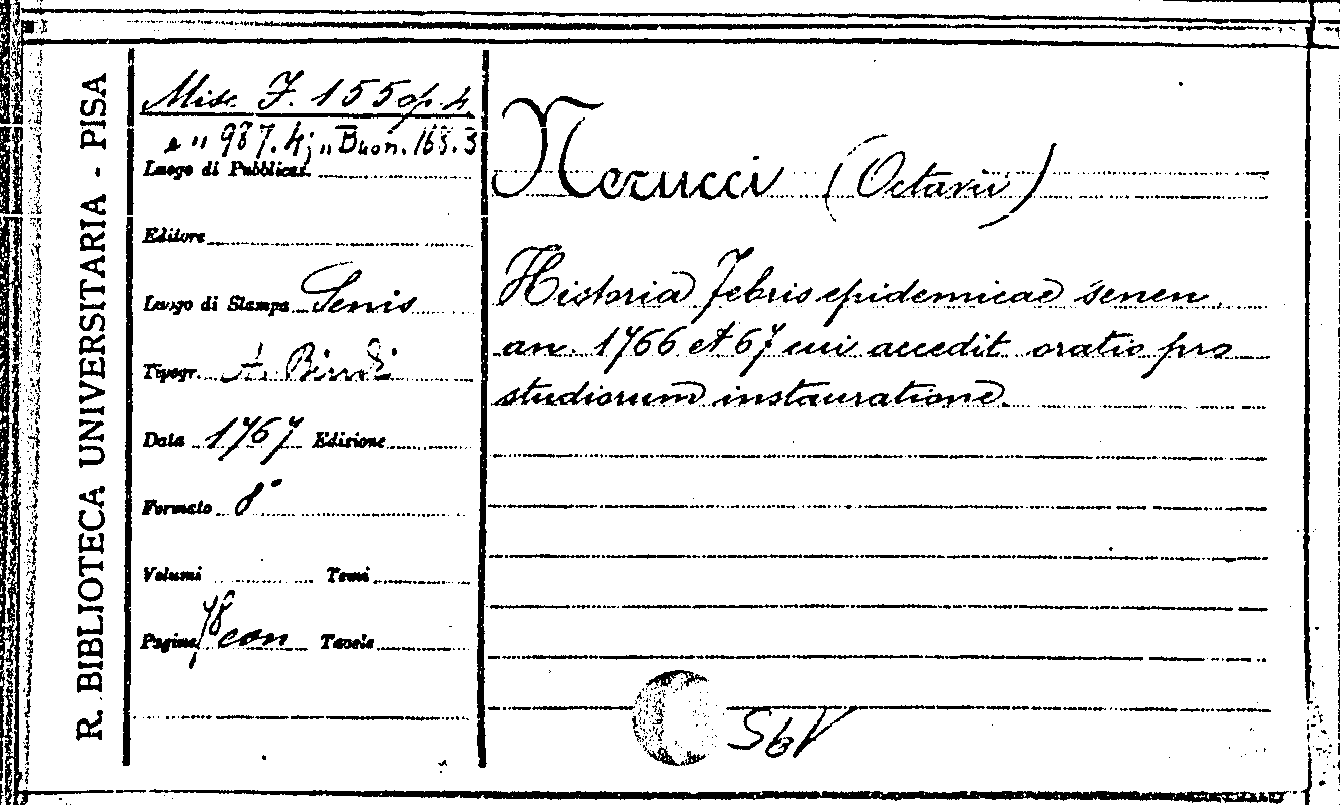 R. BIBLIOTECA UNIVERSITARIA - PISA
Misc. F. 155 op. 4.
e " 987.4; " Buon. 168.3
Luogo di Pubblicaz.
Editore
Luogo di Stampa Senis
Tipogr. A. Bindi
Data 1767 Edizione
Formato 8°
Volumi Tomi
Pagine con Tavole
Nerucci (Octavii)
Historia febris epidemicae senen.
an. 1766 et 67 cui accedit oratio pro
studiorum instauratione.
SbV